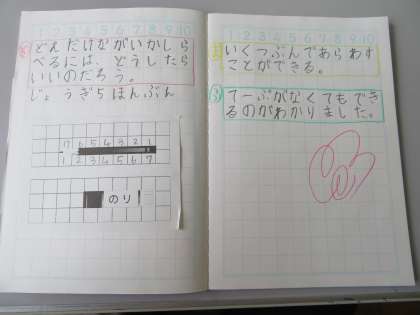 1 2 3 4 5 6 7 8 9 10
どんだけながいかしら
べるには、どうしたら
いいのだろう。
じょうぎちほんぶん
7 6 5 4 3 2 1
1 2 3 4 5 6 7
のり
1 2 3 4 5 6 7 8 9 10
いくつぶんであらわす
ことができる。
てーぷがなくてもでき
るのがわかりました。